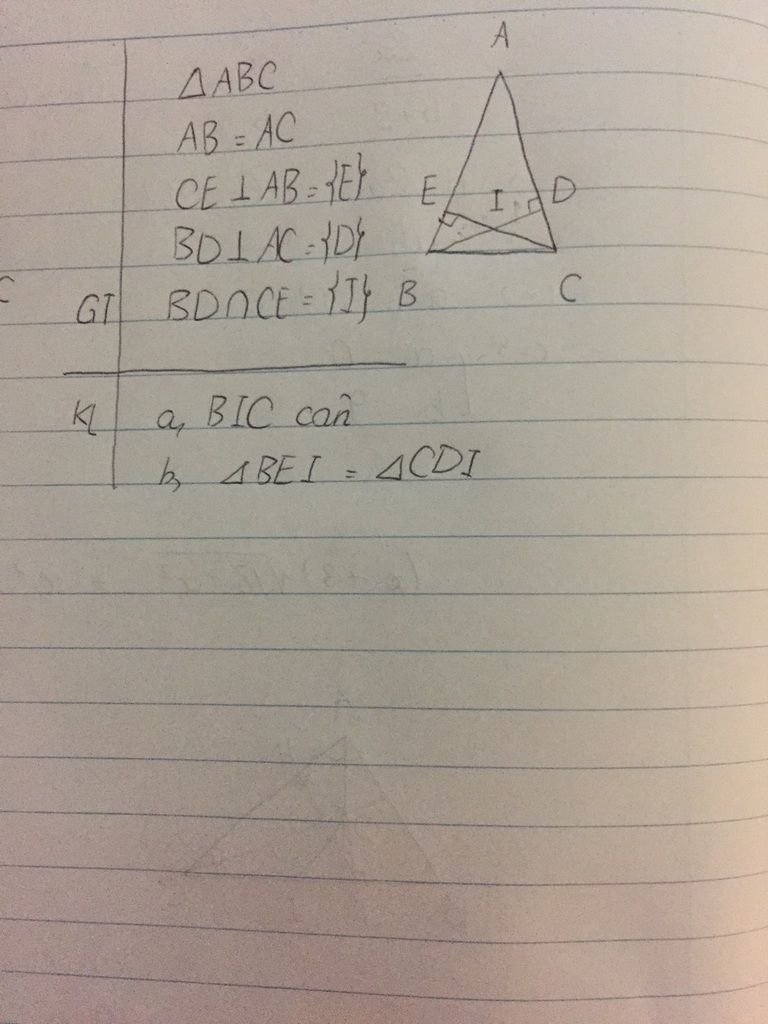 A
△ABC
AB = AC
CE ⊥ AB = {E}
E I D
BD ⊥ AC = {D}
GT BD ∩ CE = {I} B C
KL a, BIC cân
b, △BEI = △CDI